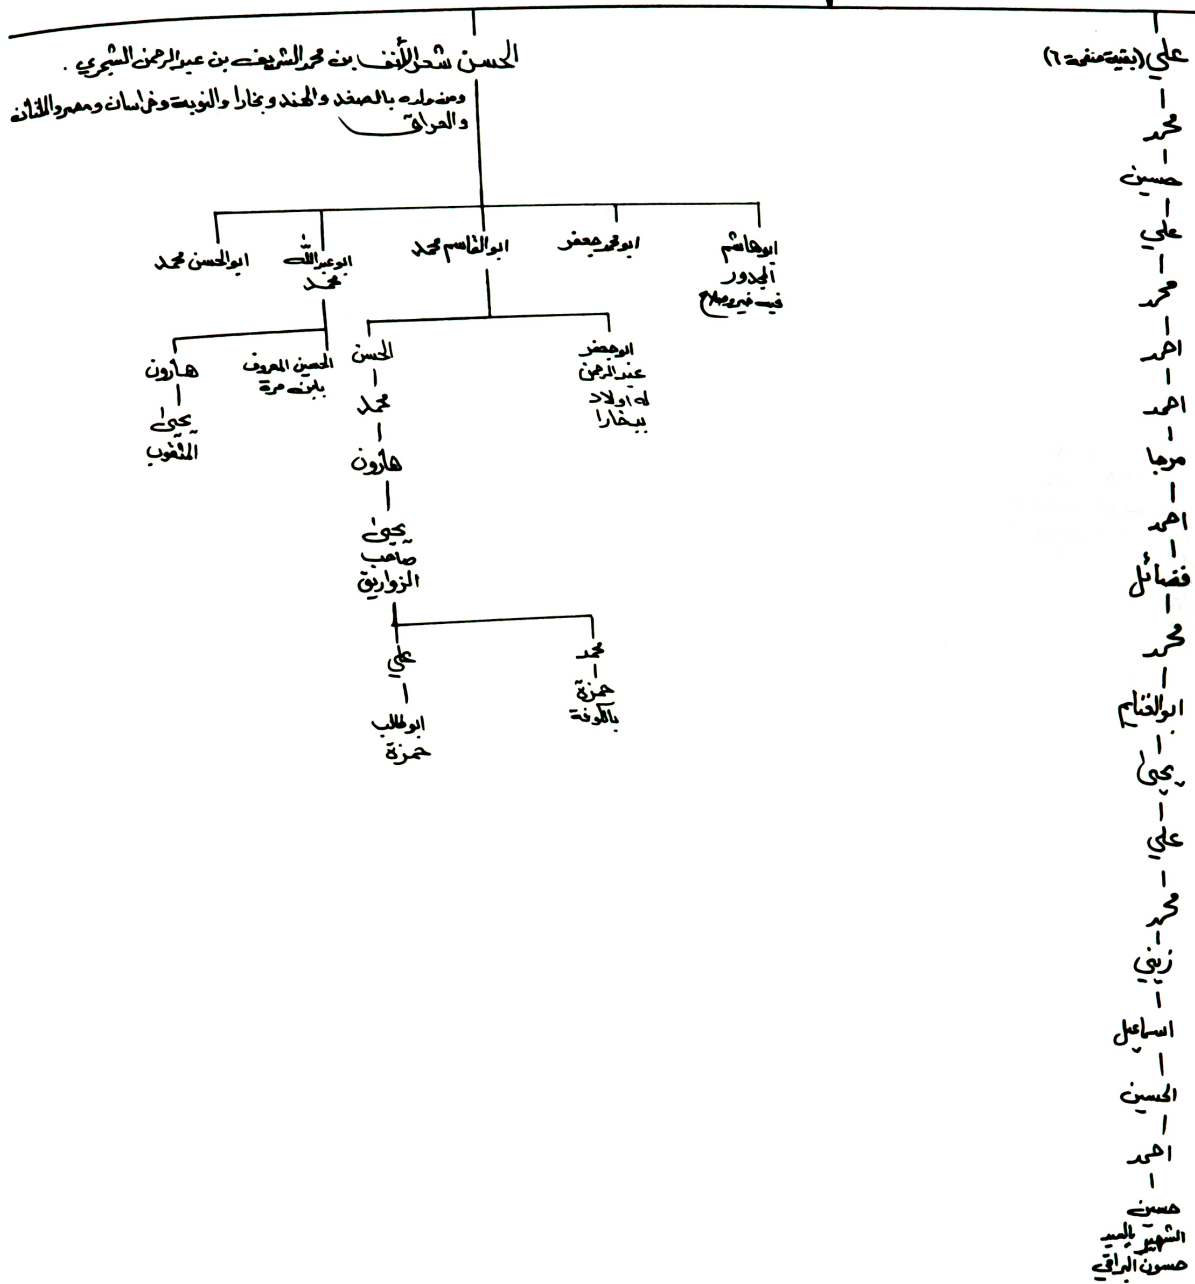 علي (بقية صفحة ٦)
محمد
حسين
علي
محمد
احمد
احمد
مرجا
احمد
فضائل
محمد
ابو الغنايم
يحيى
علي
محمد
زيني
اسماعيل
الحسين
احمد
حسين
الشهير بالسيد
حسون البراقي
الحسن شعر الأنف بن محمد الشريف بن عبد الرحمن الشجري .
ومن ولده بالصغد والهند وبخارا والنوبة وخراسان ومصر والختان
والعراق
ابو هاشم
المجدور
فيه خير وصلاح
ابو محمد جعفر
ابو القاسم محمد
ابو عبدالله
محمد
ابو الحسن محمد
ابو جعفر
عبد الرحمن
له اولاد
ببخارا
الحسن
محمد
هارون
يحيى
صاحب
الزواريق
محمد
حمزة
بالكوفة
علي
ابو طالب
حمزة
الحسين المعروف
بابن مرة
هارون
يحيى
المثقوب